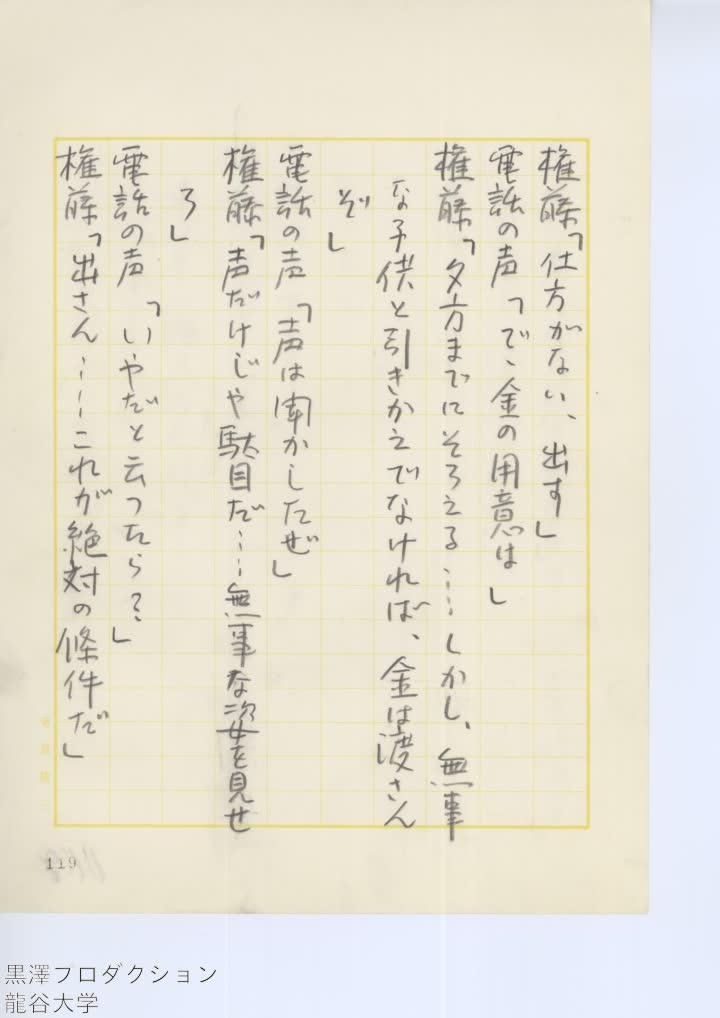 権藤「仕方がない、出す」
電話の声「で、金の用意は」
権藤「夕方までにそろえる……しかし、無事
な子供と引きかえでなければ、金は渡さん
ぞ」
電話の声「声は聞かしたぜ」
権藤「声だけじゃ駄目だ……無事な姿を見せ
ろ」
電話の声「いやだと云ったら?」
権藤「出さん……これが絶対の條件だ」
119
黒澤プロダクション
龍谷大学